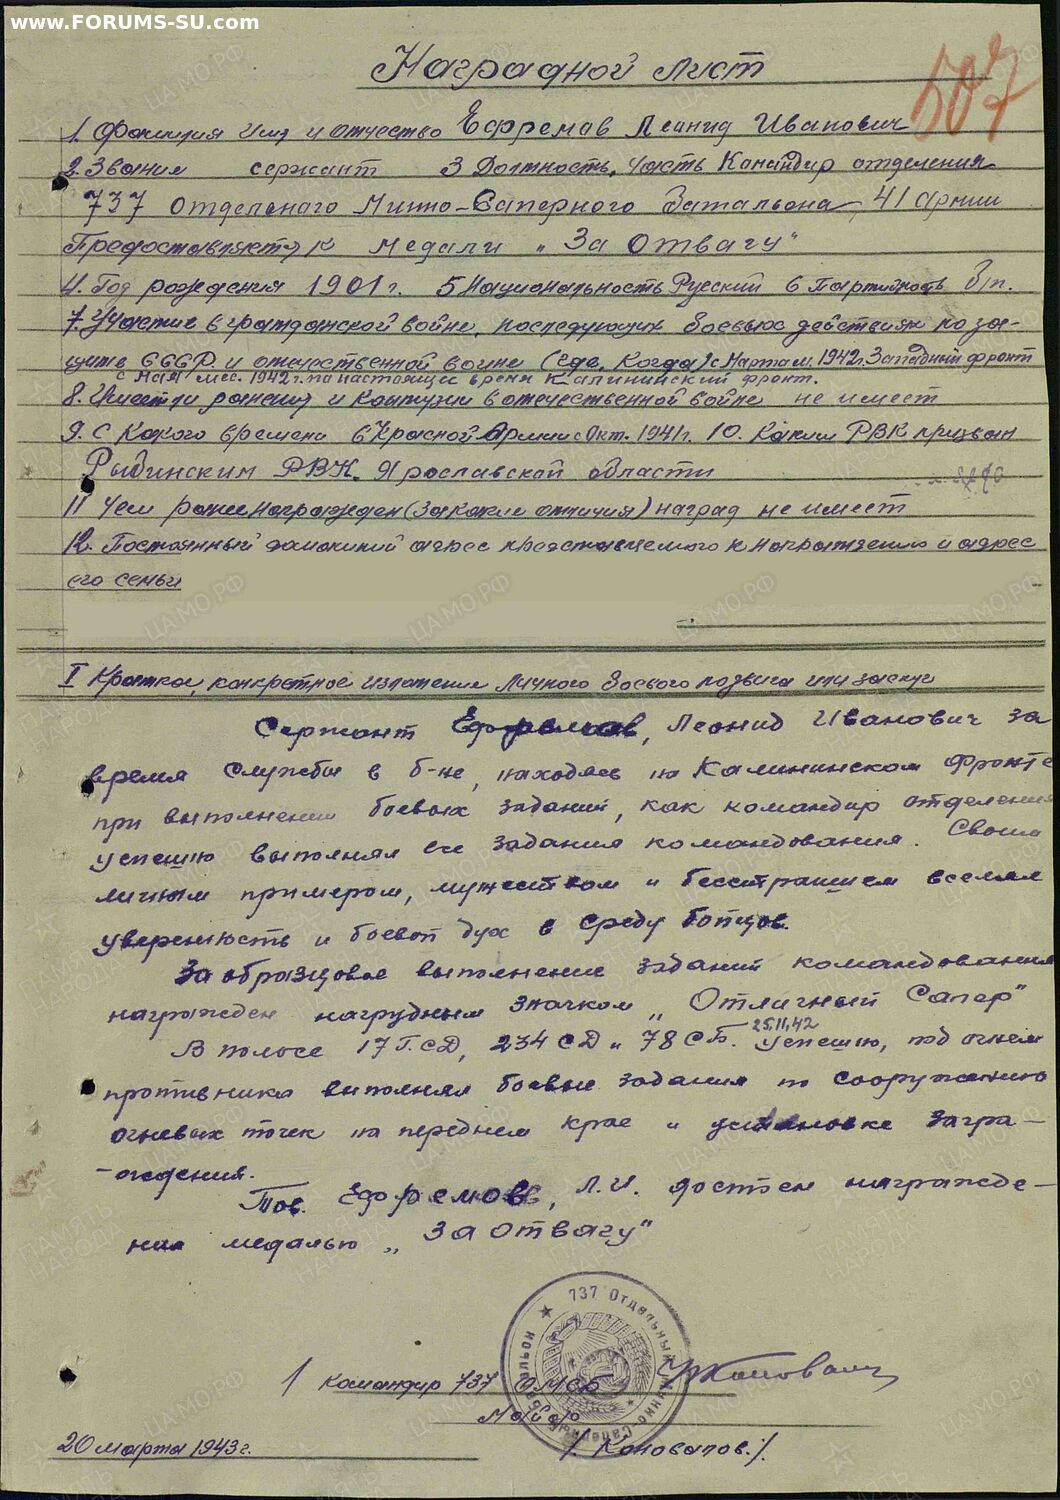 www.FORUMS-SU.com
Наградной лист
507
1. Фамилия Имя и отчество Ефремов Леонид Иванович
2. Звание сержант 3 Должность, часть Командир отделения
737 Отдельного Минно-Саперного батальона, 41 армии
Предоставляется к медали „За Отвагу"
4. Год рождения 1901 г. 5 Национальность Русский 6 Партийность б/п.
7. Участие в гражданской войне, последующих боевых действиях по за-
щите СССР и отечественной войне (где, когда) с Марта м. 1942 г. Западный фронт
с Мая мес. 1942 г. по настоящее время Калининский фронт.
8. Имеет ли ранения и контузии в отечественной войне не имеет
9. С какого времени в Красной Армии с Окт. 1941 г. 10. Каким РВК призван
Рыбинским РВК. Ярославской области
11 Чем ранее награжден (за какие отличия) наград не имеет
12. Постоянный домашний адрес представляемого к награждению и адрес
его семьи
I Краткое, конкретное изложение личного боевого подвига или заслуг
Сержант Ефремов, Леонид Иванович за
время службы в б-не, находясь на Калининском Фронте
при выполнении боевых заданий, как командир отделения
успешно выполнял все задания командования. Своим
личным примером, мужеством и бесстрашием вселял
уверенность и боевой дух в среду бойцов.
За образцовое выполнение заданий командования
награжден нагрудным значком „Отличный Сапер"
25.11.42
В полосе 17 Г.СД, 234 СД и 78 СБ. успешно, под огнем
противника выполнял боевые задания по сооружению
огневых точек на переднем крае и установке загра-
-ждения.
Тов. Ефремов, Л.И. достоен награжде-
ния медалью „За отвагу"
737 Отдельный Минно-Саперный Батальон
1 Командир 737 ОМСБ
Майор
/Коновалов./.
20 марта 1943 г.